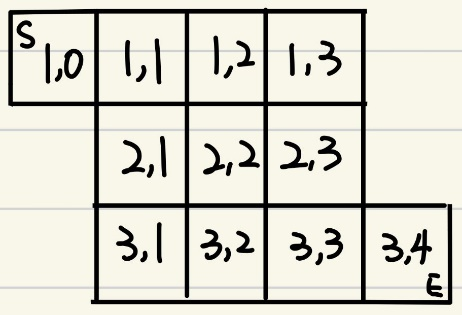 S 1,0 1,1 1,2 1,3
2,1 2,2 2,3
3,1 3,2 3,3 3,4 E